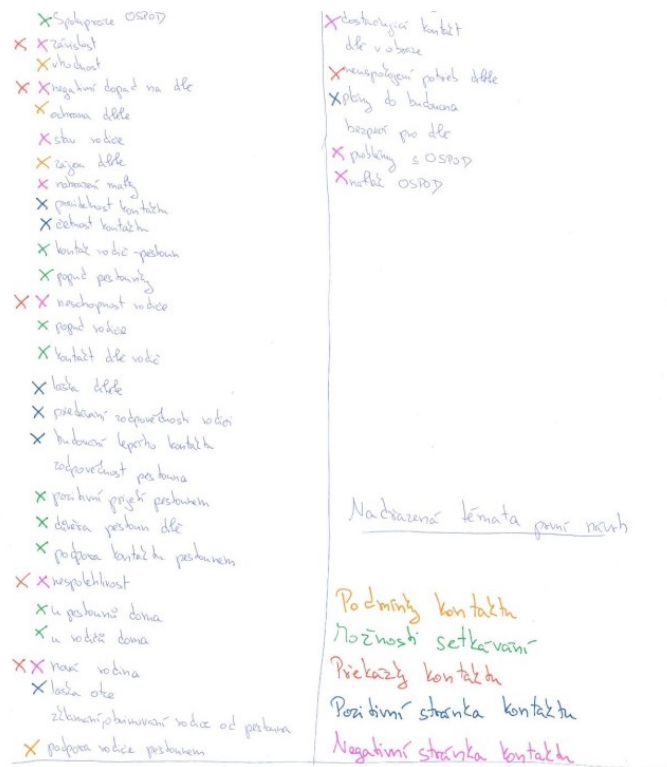 Spolupráce OSPOD
závislost
vhodnost
negativní dopad na dítě
ochrana dítěte
stav rodiče
zájem dítěte
nahrazení matky
pravidelnost kontaktu
četnost kontaktu
kontakt rodič-pěstoun
popud pěstounky
neschopnost rodiče
popud rodiče
kontakt dítě rodič
láska dítěte
předávání zodpovědnosti rodiči
budování lepšího kontaktu
zodpovědnost pěstouna
pozitivní přijetí pěstounem
důvěra pěstoun dítě
podpora kontaktu pěstounem
nespolehlivost
u pěstounů doma
u rodičů doma
nová rodina
láska otce
obviňování rodiče od pěstouna
podpora rodiče pěstounem
dostačující kontakt
dítě v obraze
neuspokojení potřeb dítěte
plány do budoucna
bezpečí pro dítě
problémy s OSPOD
nátlak OSPOD
Nadřazená témata první návrh
Podmínky kontaktu
Možnosti setkávání
Překážky kontaktu
Pozitivní stránka kontaktu
Negativní stránka kontaktu